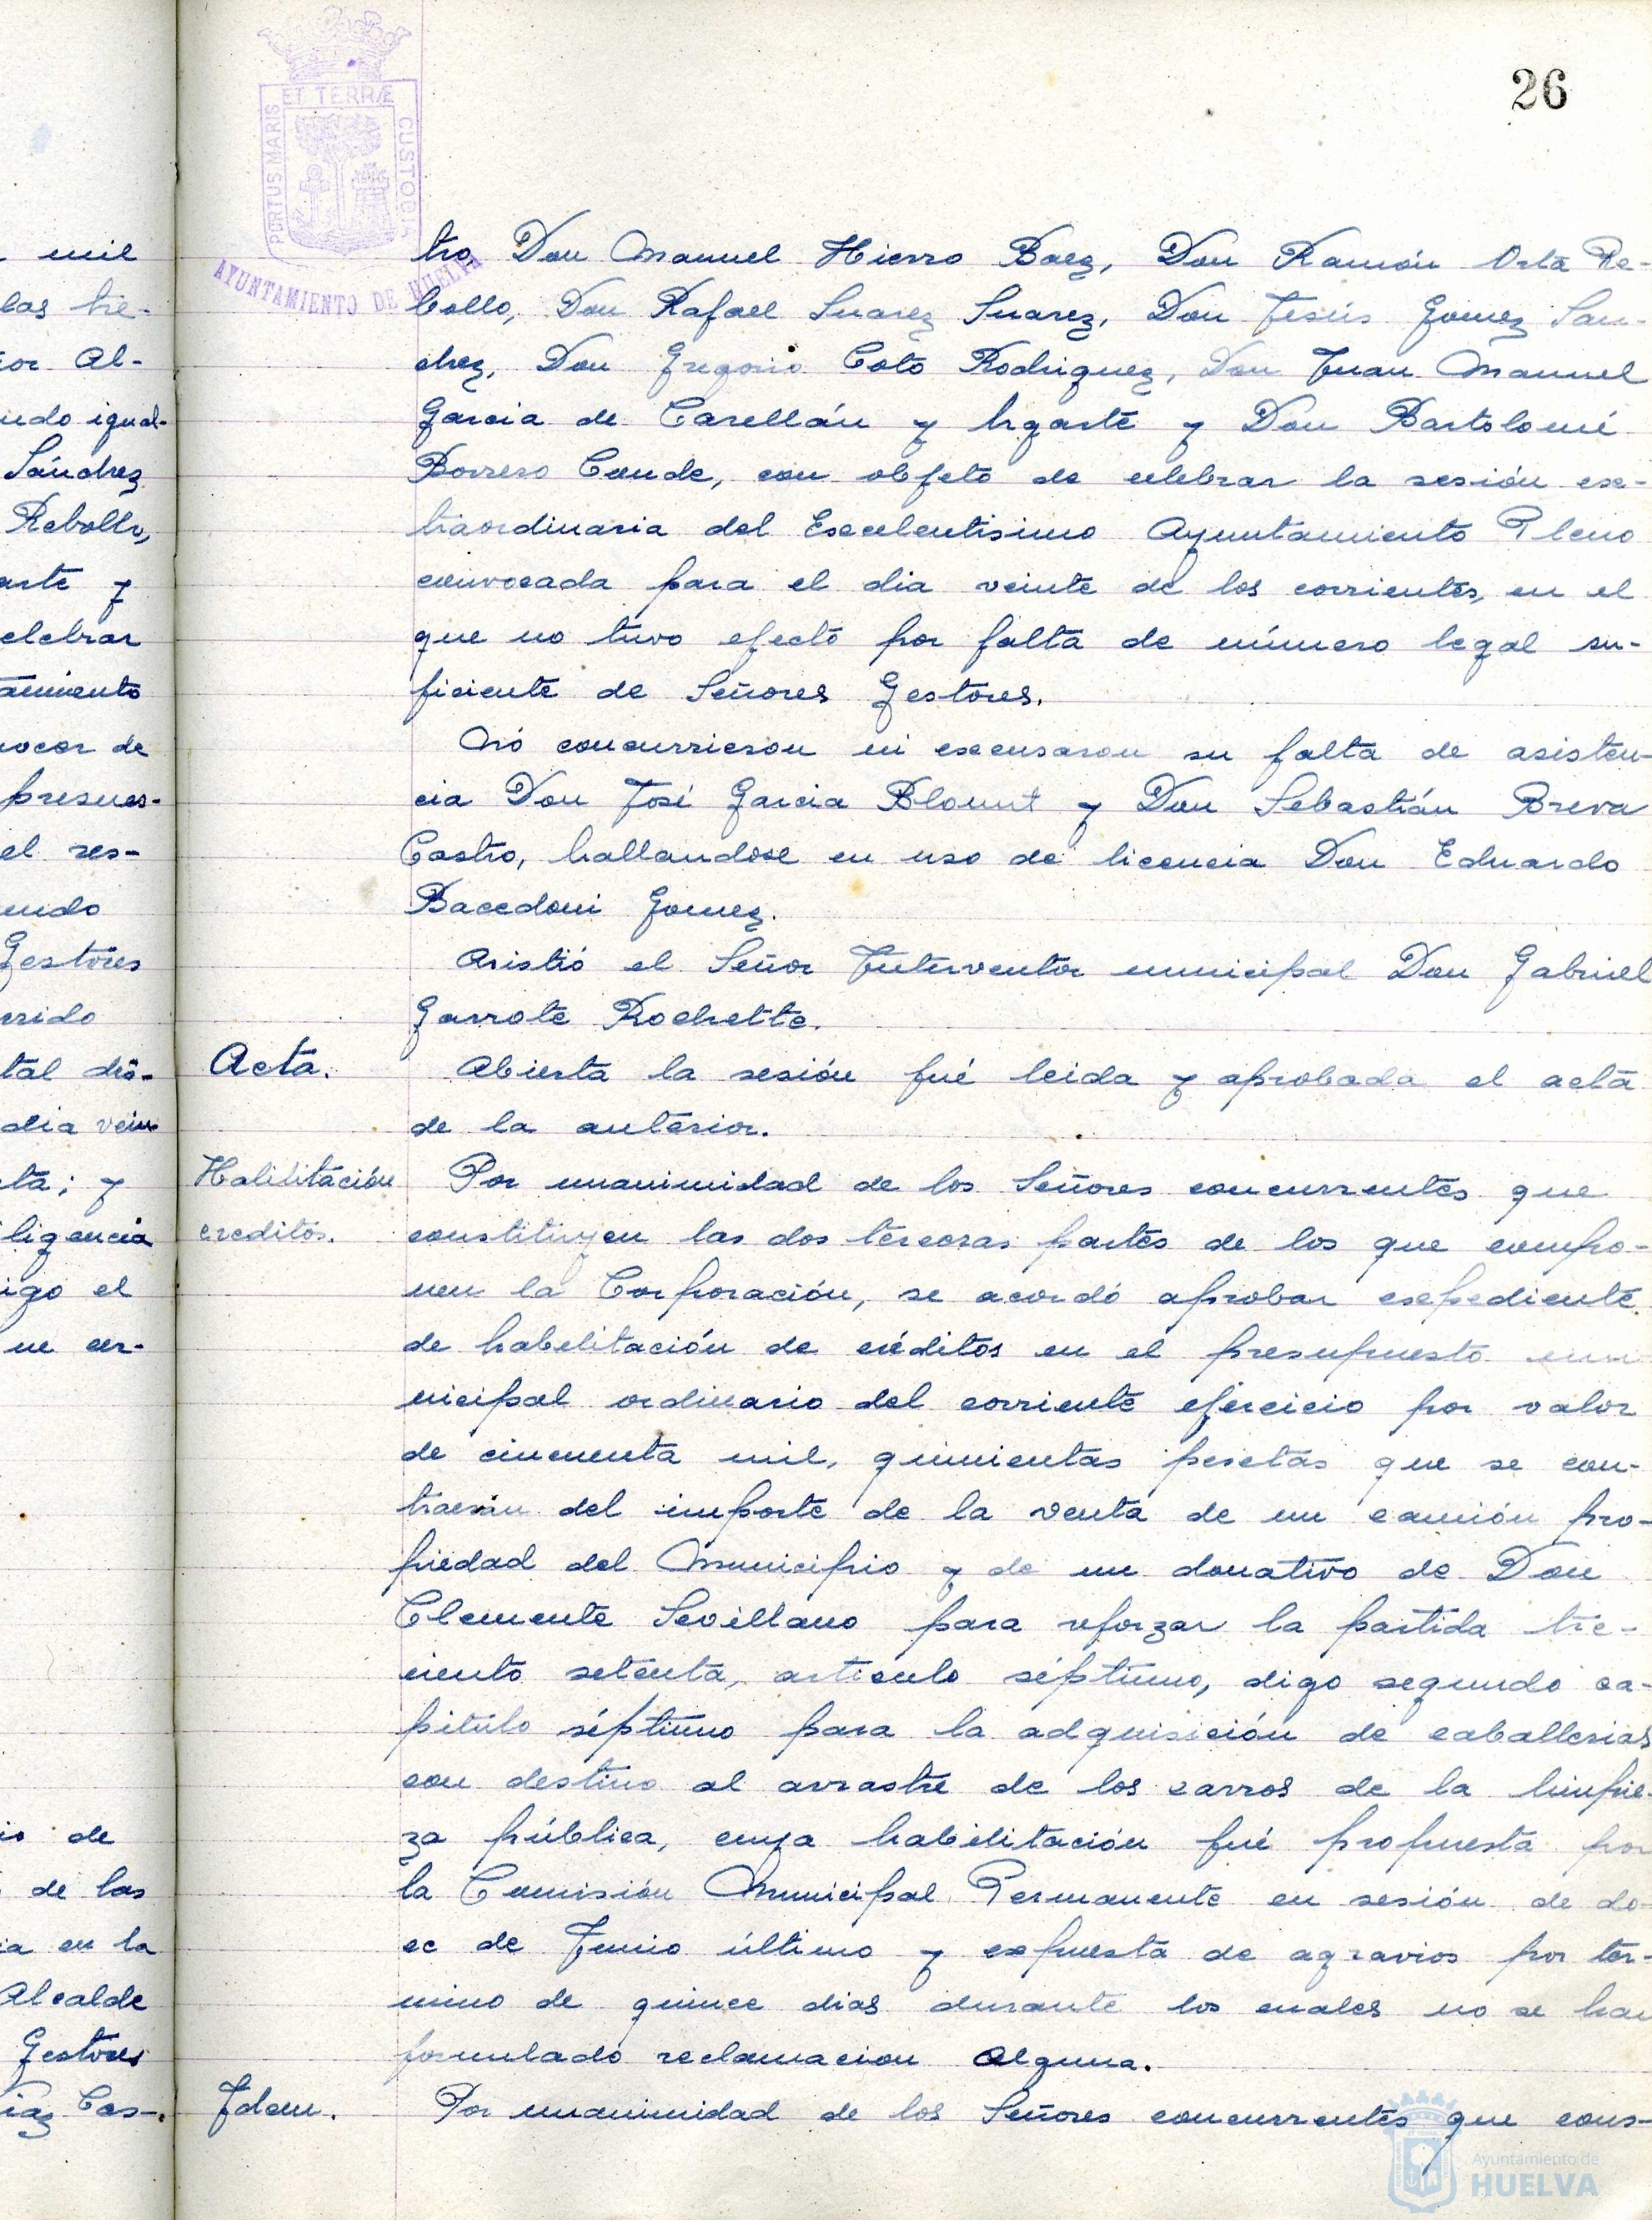 26
PORTUS MARIS
ET TERRÆ
CUSTODIA
AYUNTAMIENTO DE HUELVA
mil
las tie-
or Al-
ndo igual-
Sánchez
Rebollo,
arte y
elebrar
tamiento
nocer de
presues-
el res-
endo
Gestores
erido
tal dis-
dia vein
ta; y
ligencia
igo el
ue cer-
io de
de las
ia en la
Alcalde
Gestores
Cas-
tro, Don Manuel Hierro Baez, Don Ramón Orta Re-
bollo, Don Rafael Suarez Suarez, Don Jesús Gomez San-
chez, Don Gregorio Coto Rodriguez, Don Juan Manuel
Garcia de Carellán y Ugarte y Don Bartolomé
Borrero Conde, con objeto de celebrar la sesión ex-
traordinaria del Excelentisimo Ayuntamiento Pleno
convocada para el dia veinte de los corrientes, en el
que no tuvo efecto por falta de número legal su-
ficiente de Señores Gestores.
No concurrieron ni excusaron su falta de asisten-
cia Don José Garcia Blount y Don Sebastián Breva
Castro, hallandose en uso de licencia Don Eduardo
Bacedoni Gomez.
Asistió el Señor Interventor municipal Don Gabriel
Garrote Rochette.
Acta.
Abierta la sesión fué leida y aprobada el acta
de la anterior.
Habilitación
creditos.
Por unanimidad de los Señores concurrentes que
constituyen las dos terceras partes de los que compo-
nen la Corporación, se acordó aprobar expediente
de habilitación de créditos en el presupuesto mu
nicipal ordinario del corriente ejercicio por valor
de cincuenta mil, quinientas pesetas que se con-
traerán del importe de la venta de un camión pro-
piedad del Municipio y de un donativo de Don
Clemente Sevillano para reforzar la partida tre-
ciento setenta, articulo séptimo, digo segundo ca-
pitulo séptimo para la adquisición de caballerias
con destino al arrastre de los carros de la limpie-
za pública, cuya habilitación fué propuesta por
la Comisión Municipal Permanente en sesión de do-
ce de Junio último y expuesta de agravios por tér-
mino de quince dias durante los cuales no se han
formulado reclamacion alguna.
Idem.
Por unanimidad de los Señores concurrentes que cons-
Ayuntamiento de
HUELVA